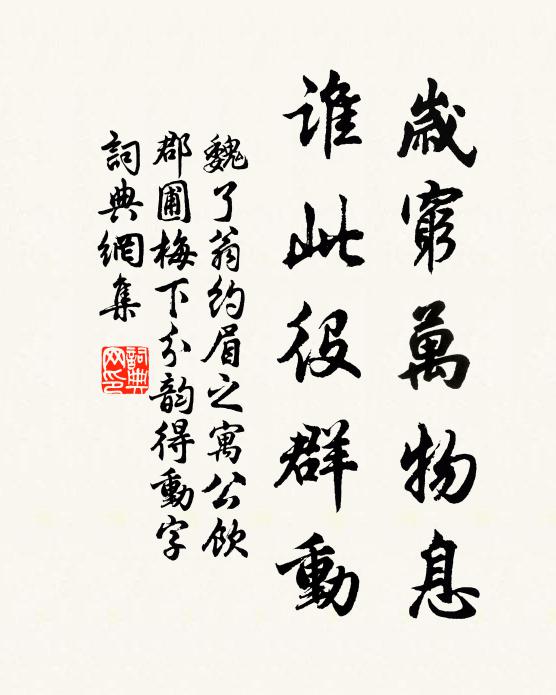 歲窮萬物息
誰此役群動
魏了翁約眉之寓公飲
郡圃梅下分韵得動字
詞典網集
詞典网印